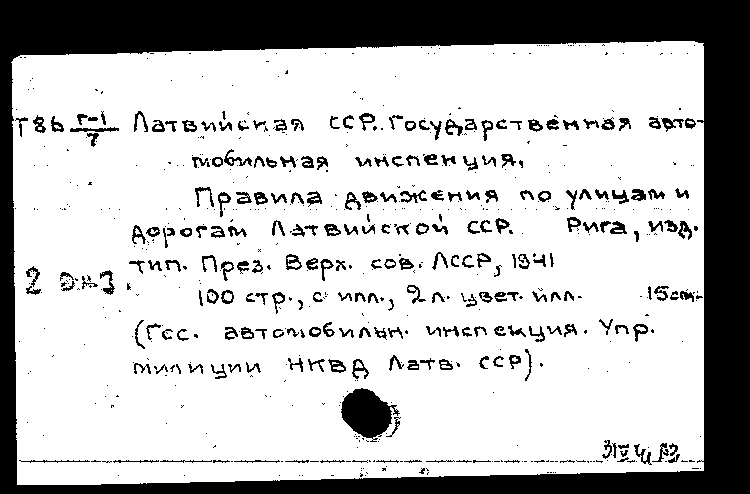 Т86 Г-1/7 Латвийская ССР. Государственная авто-
мобильная инспекция.
Правила движения по улицам и
дорогам Латвийской ССР. Рига, изд.
тип. През. Верх. сов. ЛССР, 1941
2 экз.
100 стр., с илл., 2 л. цвет. илл. 15 см.
(Гос. автомобильн. инспекция. Упр.
милиции НКВД Латв. ССР).